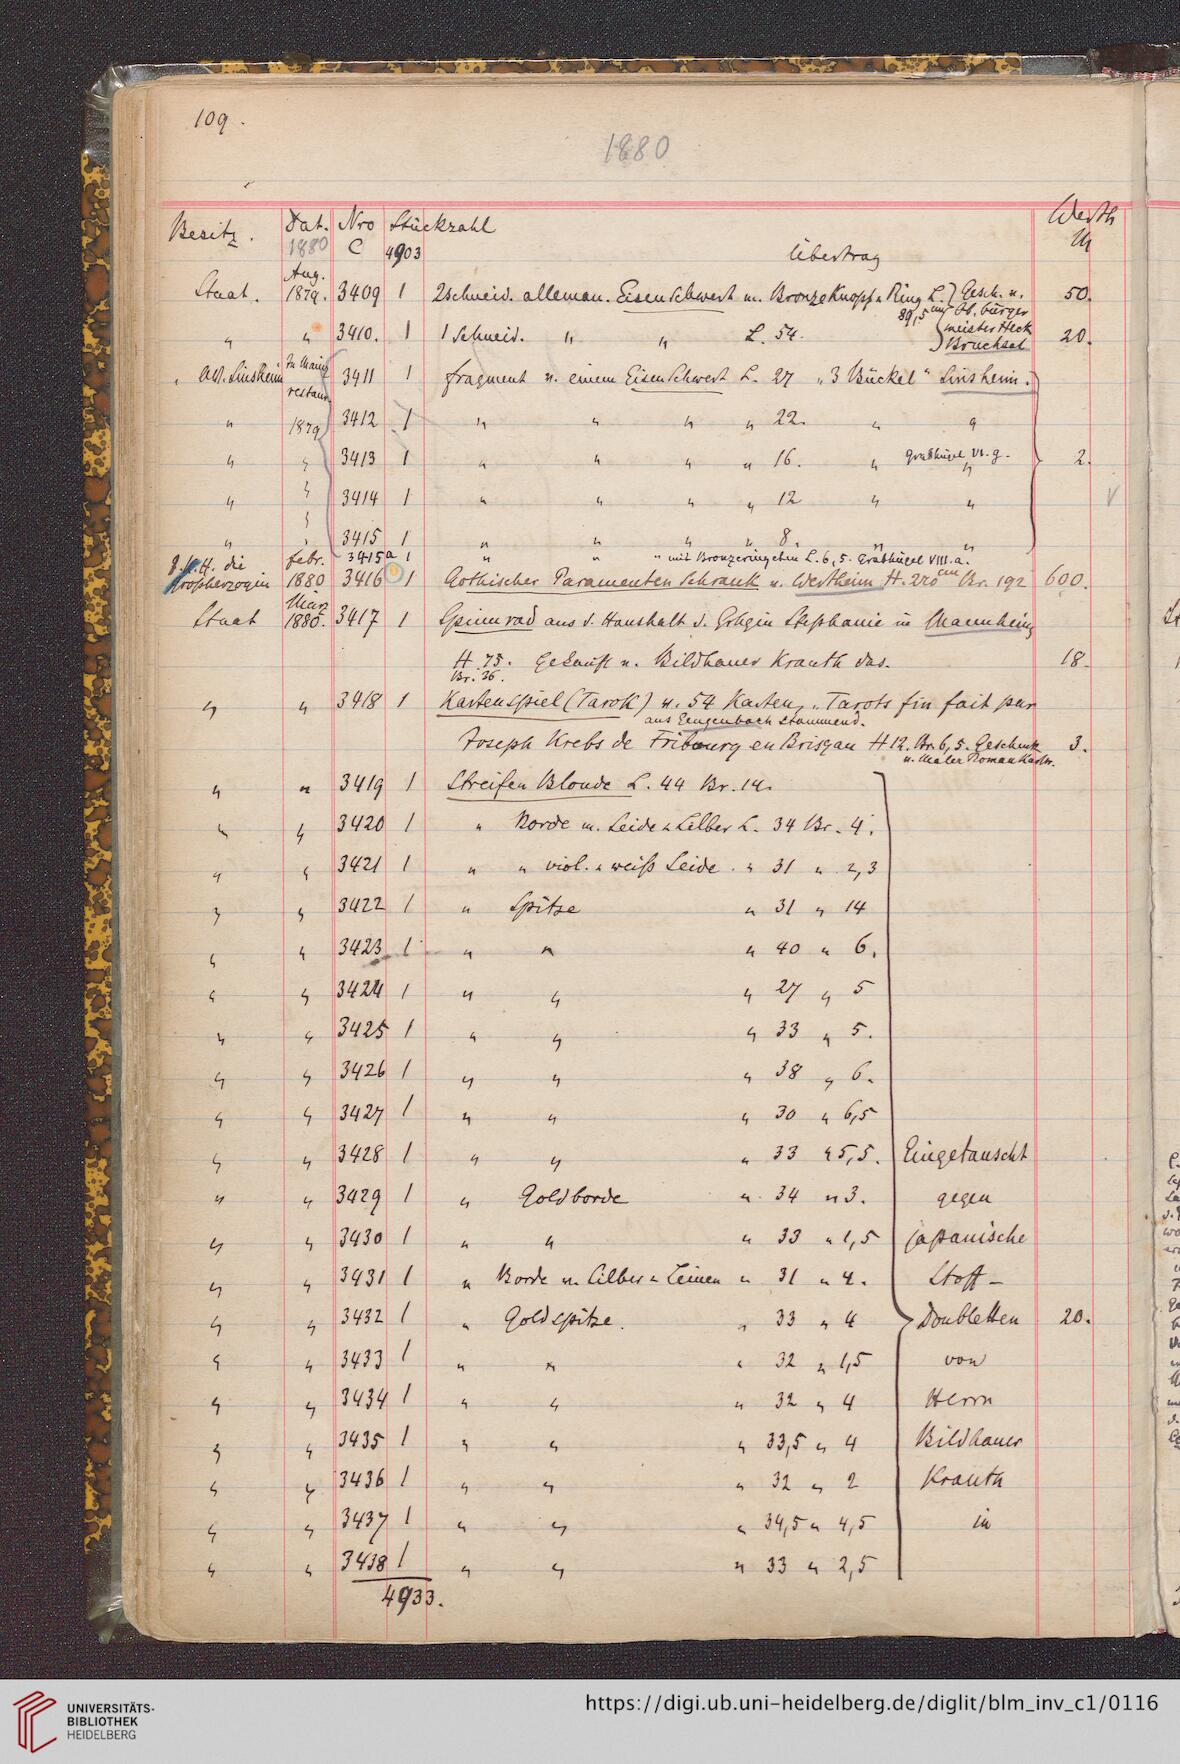 109.
1880
Besitz. Dat. Nro Stückzahl Werth
1880 C 4903 Übertrag M
Staat. Aug. 1879. 3409 1 2schneid. alleman. Eisenschwert m. Bronzeknopf u Ring L. 89,5 cm } Gesch. v. 50.
Ob. bürger
„ „ 3410. 1 1 Schneid. „ „ L. 54. meister Heck 20.
Bruchsal
„ Alt. Sinsheim In Mainz restaur. 3411 1 fragment v. einem Eisenschwert L. 27 „3 Bückel“ Sinsheim.
„ 1879 3412 1 „ „ „ „ 22. „ „
„ „ 3413 1 „ „ „ „ 16. „ Grabhügel VI. g. 2.
„ „ 3414 1 „ „ „ „ 12 „ „
„ „ 3415 1 „ „ „ „ 8. „ „
3415a 1 „ „ „ mit Bronzeringchen L. 6,5. Grabhügel VIII. a.
I. K. H. die Grossherzogin febr. 1880 3416 1 Gothischer Paramenten Schrank v. Wertheim H. 220 cm Br. 192 600.
Staat März 1880. 3417 1 Spinnrad aus d. Haushalt d. Grhgin Stephanie in Mannheim
H. 75. Gekauft v. Bildhauer Krauth das. 18.
Br. 36.
„ „ 3418 1 Kartenspiel (Tarok) v. 54 Karten, „Tarots fin fait par
aus Gengenbach stammend.
Joseph Krebs de Fribourg en Brisgau H 12. Br. 6,5. Geschenk 3.
v. Maler Roman Karlsr.
„ „ 3419 1 Streifen Blonde L. 44 Br. 14.
„ „ 3420 1 „ Borde m. Seide u Silber L. 34 Br. 4.
„ „ 3421 1 „ „ viol. u weiß Seide. „ 31 „ 2,3
„ „ 3422 1 „ Spitze „ 31 „ 14
„ „ 3423 1 „ „ „ 40 „ 6.
„ „ 3424 1 „ „ „ 27 „ 5
„ „ 3425 1 „ „ „ 33 „ 5.
„ „ 3426 1 „ „ „ 38 „ 6.
„ „ 3427 1 „ „ „ 30 „ 6,5
„ „ 3428 1 „ „ „ 33 „ 5,5. Eingetauscht
„ „ 3429 1 „ Goldborde „ 34 „ 3. gegen
„ „ 3430 1 „ „ „ 33 „ 1,5 japanische
„ „ 3431 1 „ Borde v. Silber u Leinen „ 31 „ 4. Stoff-
„ „ 3432 1 „ Goldspitze. „ 33 „ 4 Doubletten 20.
„ „ 3433 1 „ „ „ 32 „ 1,5 von
„ „ 3434 1 „ „ „ 32 „ 4 Herrn
„ „ 3435 1 „ „ „ 33,5 „ 4 Bildhauer
„ „ 3436 1 „ „ „ 32 „ 2 Krauth
„ „ 3437 1 „ „ „ 34,5 „ 4,5 in
„ „ 3438 1 „ „ „ 33 „ 2,5
4933.
UNIVERSITÄTS-
BIBLIOTHEK
HEIDELBERG
https://digi.ub.uni-heidelberg.de/diglit/blm_inv_c1/0116